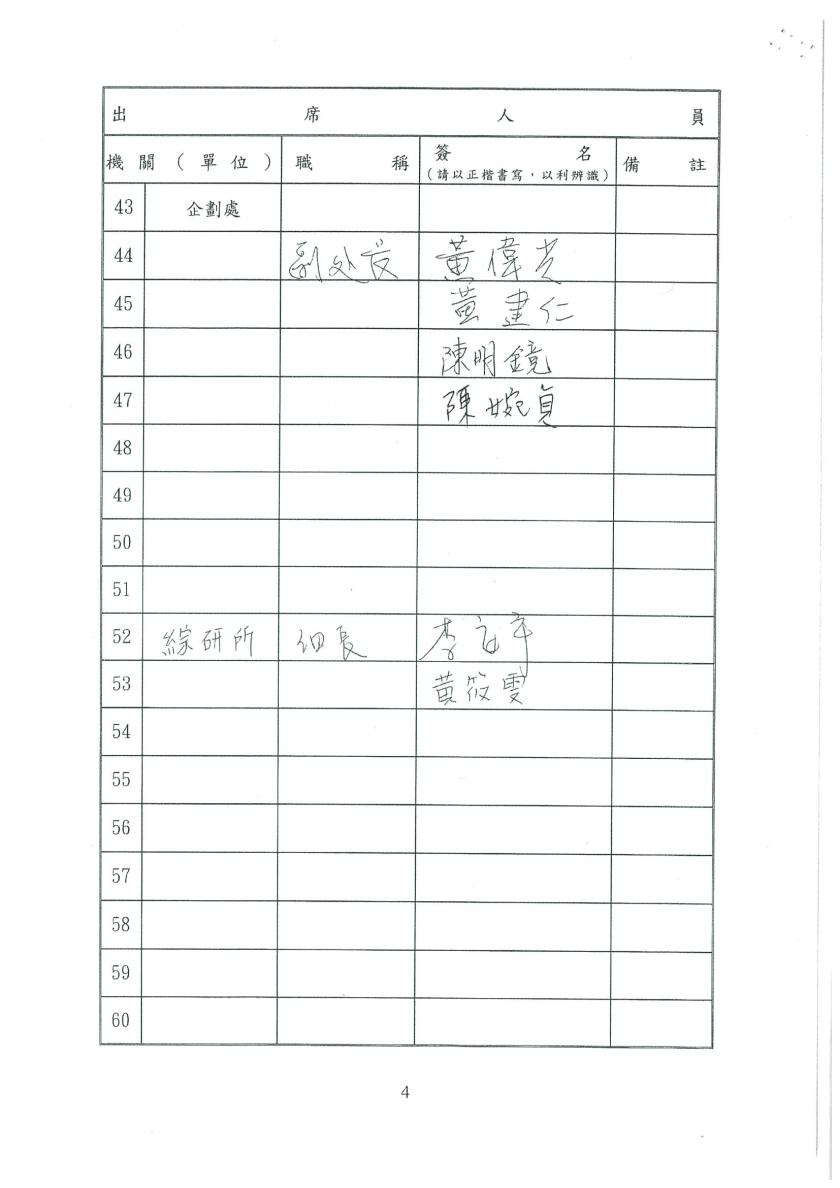 出席人員
機關（單位） 職稱 簽名 備註
（請以正楷書寫，以利辨識）
43 企劃處
44 副处長 黃偉光
45 黃建仁
46 陳明鏡
47 陳婉貞
48
49
50
51
52 綜研所 組長 李
53 黃筱雯
54
55
56
57
58
59
60
4